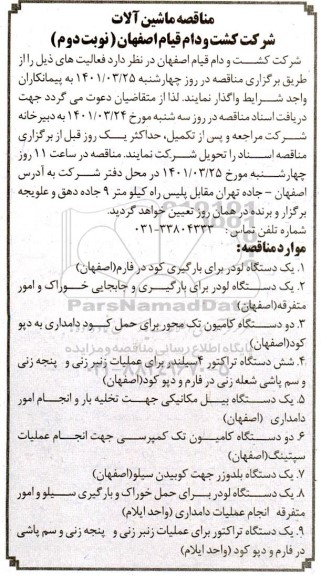 مناقصه ماشین آلات
شرکت کشت و دام قیام اصفهان ( نوبت دوم )
شرکت کشت و دام قیام اصفهان در نظر دارد فعالیت های ذیل را از
طریق برگزاری مناقصه در روز چهارشنبه ۱۴۰۱/۰۳/۲۵ به پیمانکاران
واجد شرایط واگذار نمایند. لذا از متقاضیان دعوت می گردد جهت
دریافت اسناد مناقصه در روز سه شنبه مورخ ۱۴۰۱/۰۳/۲۴ به دبیرخانه
شرکت مراجعه و پس از تکمیل، حداکثر یک روز قبل از برگزاری
مناقصه اسناد را تحویل شرکت نمایند. مناقصه در ساعت ۱۱ روز
چهارشنبه مورخ ۱۴۰۱/۰۳/۲۵ در محل دفتر شرکت به آدرس
اصفهان - جاده تهران مقابل پلیس راه کیلو متر ۹ جاده دهق و علویجه
برگزار و برنده در همان روز تعیین خواهد گردید.
شماره تلفن تماس : ۳۳۸۰۴۳۳۳-۰۳۱
موارد مناقصه:
۱. یک دستگاه لودر برای بارگیری کود در فارم(اصفهان)
۲. یک دستگاه لودر برای بارگیری و جابجایی خوراک و امور
متفرقه(اصفهان)
۳. دو دستگاه کامیون تک محور برای حمل کود دامداری به دپو
کود(اصفهان)
۴. شش دستگاه تراکتور ۴سیلندر برای عملیات زنبر زنی و پنجه زنی
و سم پاشی شعله زنی در فارم و دپو کود(اصفهان)
۵. یک دستگاه بیل مکانیکی جهت تخلیه بار و انجام امور
دامداری (اصفهان)
۶. دو دستگاه کامیون تک کمپرسی جهت انجام عملیات
سپتینگ(اصفهان)
۷. یک دستگاه بلدوزر جهت کوبیدن سیلو(اصفهان)
۸. یک دستگاه لودر برای حمل خوراک و بارگیری سیلو و امور
متفرقه انجام عملیات دامداری (واحد ایلام)
۹. یک دستگاه تراکتور برای عملیات زنبر زنی و پنجه زنی و سم پاشی
در فارم و دپو کود (واحد ایلام)
ParsNamadData